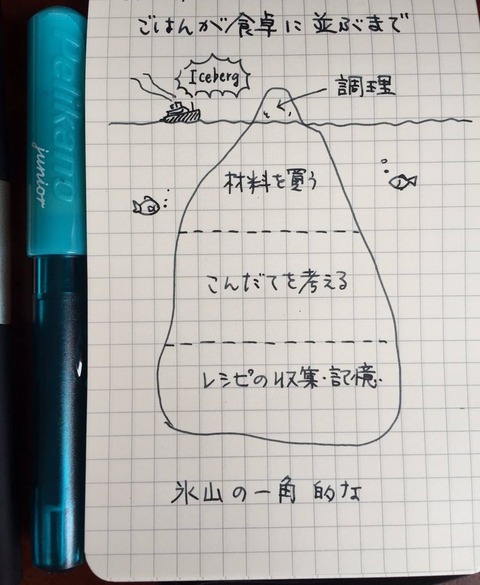 ごはんが食卓に並ぶまで
Iceberg
調理
材料を買う
こんだてを考える
レシピの収集・記憶
氷山の一角 的な
Pelikano
junior